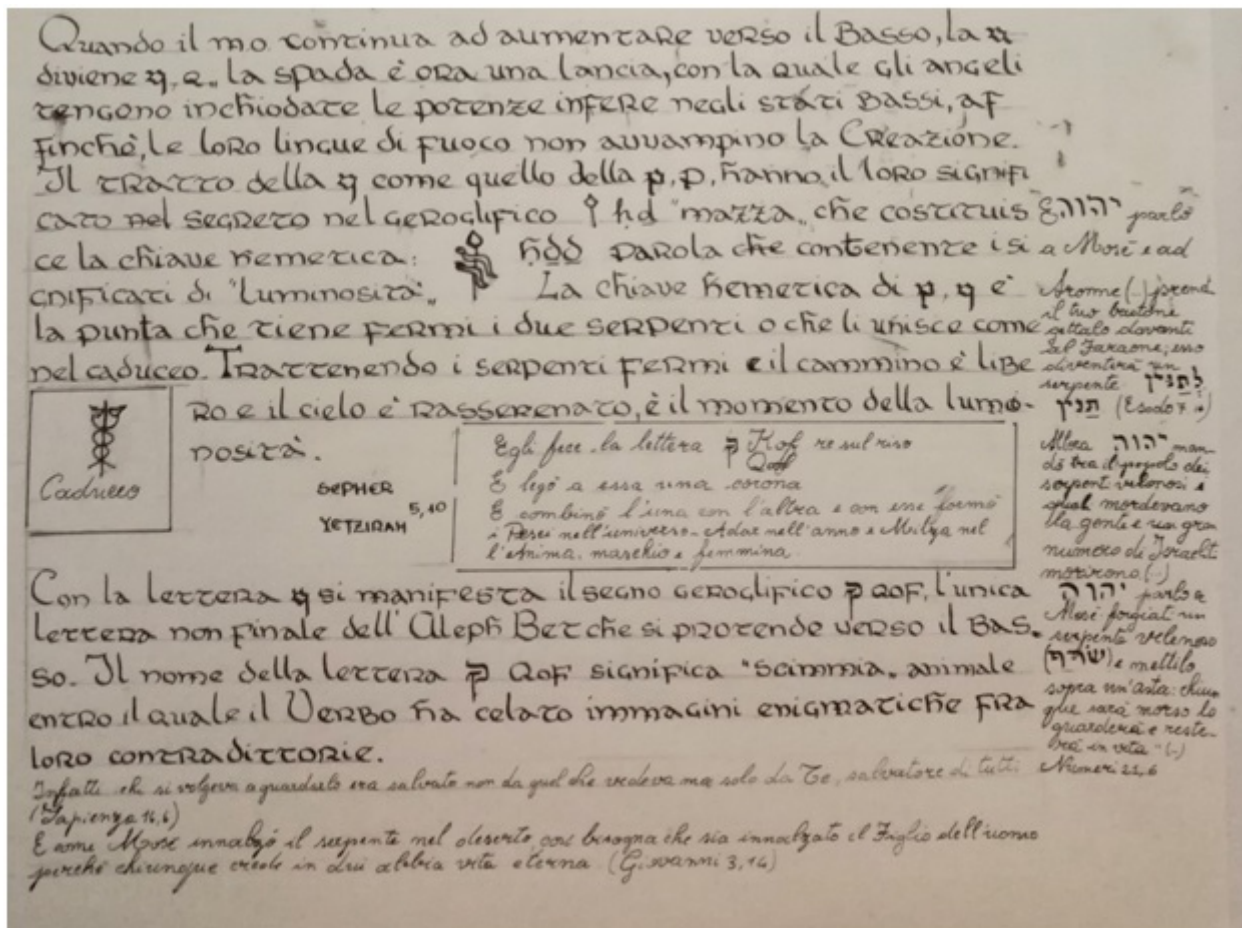 Quando il mo continua ad aumentare verso il Basso, la ꝗ
diviene ꝗ, q„ la spada è ora una lancia, con la quale gli angeli
tengono inchiodate le potenze infere negli stati Bassi, af
finchè, le loro lingue di fuoco non avvampino la Creazione.
Il tratto della ꝗ come quello della p, p, hanno il loro signifi
cato nel segreto nel geroglifico ḥd "mazza„ che costituis
ce la chiave hemetica: ḥḏḏ parola che contenente i si
gnificati di "Luminosità„ La chiave hemetica di p, ꝗ è
la punta che tiene fermi i due serpenti o che li unisce come
nel caduceo. Trattenendo i serpenti fermi e il cammino è libe
ro e il cielo è rasserenato, è il momento della lumo-
nosità.
Caduceo
Sepher
Yetzirah 5,10
Egli fece la lettera ק Kof re sul riso
Qof
E legò a essa una corona
E combinò l'una con l'altra e con esse formò
i Pesci nell'universo - Adar nell'anno e Milza nel
l'Anima. maschio e femmina.
Con la lettera ꝗ si manifesta il segno geroglifico ק Qof, l'unica
lettera non finale dell'Aleph Bet che si protende verso il Bas-
so. Il nome della lettera ק Qof significa "Scimmia„ animale
entro il quale il Verbo ha celato immagini enigmatiche fra
loro contradittorie.
Infatti chi si volgeva a guardarlo era salvato non da quel che vedeva ma solo da Te, salvatore di tutti
(Sapienza 16,6)
E come Mosè innalzò il serpente nel deserto così bisogna che sia innalzato il Figlio dell'uomo
perché chiunque crede in Lui abbia vita eterna (Giovanni 3,14)
יהוה parlò
a Mosè e ad
Aronne (..) prend
il tuo bastone
gettalo davanti
al Faraone; esso
diventerà un
serpente לְתַנִּין
תַּנִּין (Esodo 7
Allora יהוה man-
dò tra il popolo dei
serpenti velenosi i
quali mordevano
la gente e un gran
numero di Israeliti
morirono (..)
יהוה parlò a
Mosè forgiati un
serpente velenoso
(שׂרף) e mettilo
sopra un'asta: chiun
que sarà morso lo
guarderà e reste-
rà in vita" (..)
Numeri 21,6